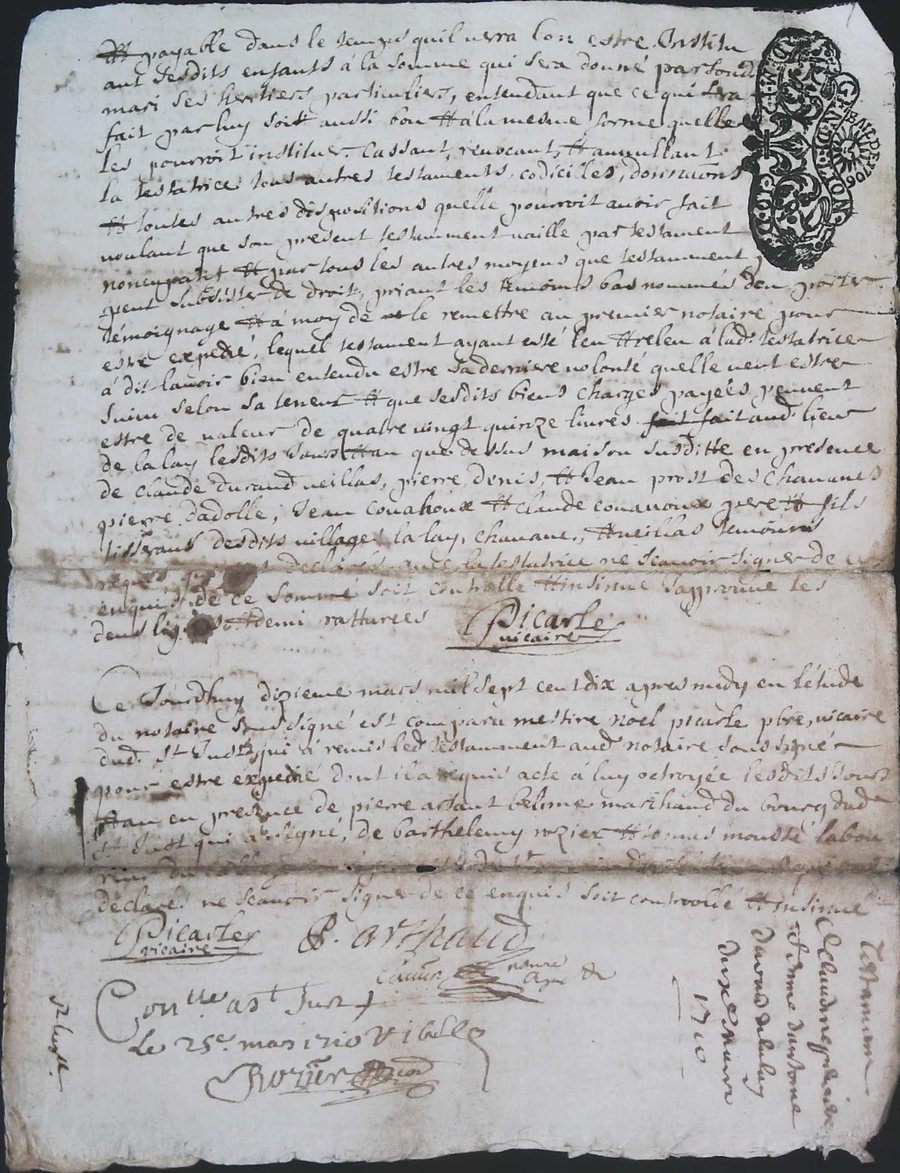 Et payable dans le temps quil verra bon estre Institu
ant sesdits enfants à la somme qui sera donné par sond
mari ses heritiers particuliers, entendant que ce qui sera
fait par luy soit aussi bon Et à la mesme forme quelle
les pourroit instituer. Cassant, revocant, Et annullant
la testatrice tous autres testaments, codicilles, donnations
Et toutes autres dispositions quelle pourroit avoir fait
voulant que son present testamment vaille par testament
noncupatif Et par tous les autres moyens que testamment
peut subsister de droit, priant les temoins bas nommés den porter
témoignage Et à moy de le remettre au premier notaire pour
estre expedié, lequel testament ayant esté leu Et releu à lad. testatrice
à dit lavoir bien entendu estre sa derniere volonté quelle veut estre
suivi selon sa teneur Et que sesdits biens charges payées peuvent
estre de valeur de quatre vingt quinze livres fait aud. lieu
de lalay lesdits Jour Et an que dessus maison susditte en presence
de claude durand veillas, pierre denis, Et Jean prost des chavanes
pierre dadolle, Jean Couahoux Et claude couavoux pere Et fils
tisserans desdits villages lalay, chavane, Et veillas temoins
requis declaré avec la testatrice ne scavoir signer de ce
enquis de ce sommé soit controlle Et insinué Japprouve les
deux lig Et demi ratturees
Picarle
vicaire
Ce Jourdhuy dizieme mars mil sept cent dix apres midy en létude
du notaire soussigné est comparu messire noel picarle pbre, vicaire
dud. St Just qui à remis led. testamment aud. notaire soussigné
pour estre expedié dont il a requis acte à luy octroyée lesdits Jour
Et an en presence de pierre artaut marchand du bourg dud.
St Just qui a signé, de barthelemy rozier Et labou
declarés ne scavoir signer de ce enquis soit controollé Et insinué
Picarle
vicaire
P. arthaud
Conlle a St Just
Le 25e. mars 1710
Rozier
Testament
Claudine
femme dantoine
durand de lalay
du 10e mars
1710
GENERALITÉ DE LION